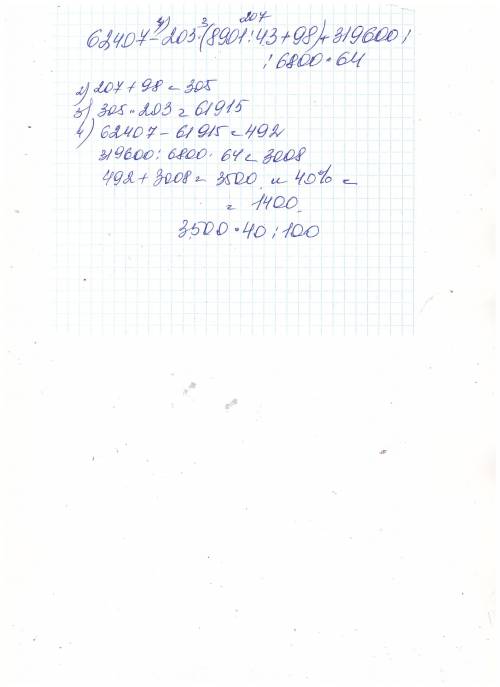 4) 3 207
62407-203·(8901:43+98)+319600:
:6800·64
2) 207+98=305
3) 305·203=61915
4) 62407-61915=492
319600:6800·64=3008
492+3008=3500 и 40% =
= 1400
3500·40:100